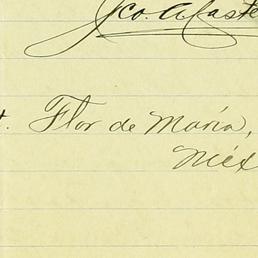 Fco. A. Caste
t. Flor de María,
Méx